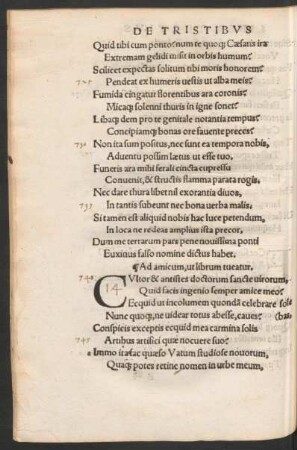 DE TRISTIBVS
Quid tibi cum ponto? num te quoq; Cæsaris ira
Extremam gelidi misit in orbis humum?
Scilicet expectas solitum tibi moris honorem?
725 Pendeat ex humeris uestis ut alba meis?
Fumida cingatur florentibus ara coronis?
Micaq; solenni thuris in igne sonet?
Libaq; dem pro te genitale notantia tempus?
Concipiamq; bonas ore fauente preces?
730 Non ita sum positus, nec sunt ea tempora nobis,
Aduentu possim lætus ut esse tuo.
Funeris ara mihi ferali cincta cupressu
Conuenit, & structis flamma parata rogis,
Nec dare thura libet nil exorantia diuos,
735 In tantis subeunt nec bona uerba malis,
Si tamen est aliquid nobis hac luce petendum,
In loca ne redeas amplius ista precor,
Dum me terrarum pars pene nouissima ponti
Euxinus falso nomine dictus habet.
¶Ad amicum, ut librum tueatur.
740 CVltor & antistes doctorum sancte uirorum,
14
Quid facis ingenio semper amice meo?
Ecquid ut incolumem quondã celebrare sole
Nunc quoq; ne uidear totus abesse, caues? (bas.
Conspicis exceptis ecquid mea carmina solis
745 Artibus artifici quæ nocuere suo?
Immo ita fac quæso Vatum studiose nouorum,
Quaq; potes retine nomen in urbe meum,